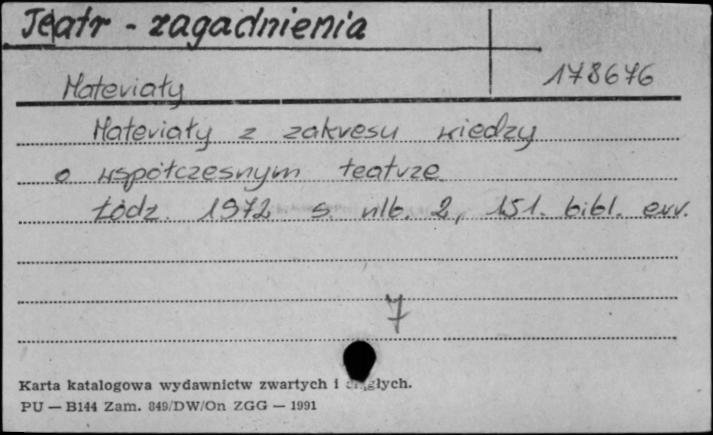 Teatr - zagadnienia
178676
Materiały
Materiały z zakresu wiedzy
o współczesnym teatrze
Łódz. 1972 s. nlb. 2, 151. bibl. err.
7
Karta katalogowa wydawnictw zwartych i ciągłych.
PU — B144 Zam. 849/DW/On ZGG — 1991